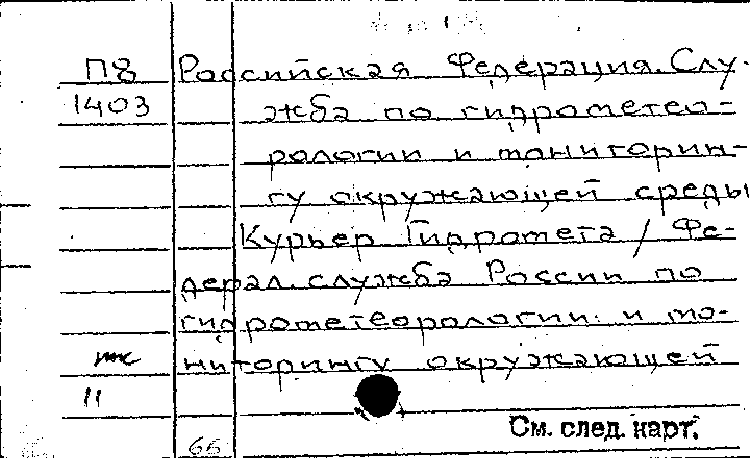 П8 Российская Федерация. Слу-
1403 жба по гидрометео-
рологии и мониторин-
гу окружающей среды
Курьер Гидромета / Фе-
дерал. служба России по
гидрометеорологии и мо-
ниторингу окружающей
11
См. след. карт.
66